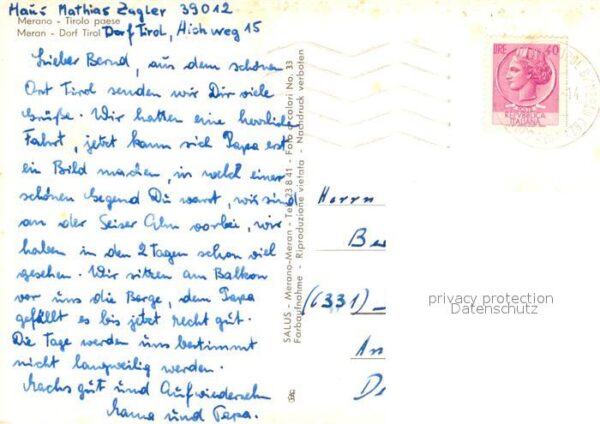 Haus Mathias Zagler 39012
Merano - Tirolo paese
Meran - Dorf Tirol
Dorf Tirol, Aichweg 15
Lieber Bernd, aus dem schönen
Ort Tirol senden wir Dir viele
Grüße. Wir hatten eine herrliche
Fahrt, jetzt kann sich Papa erst
ein Bild machen, in welch einer
schönen Gegend Du warst, wir sind
an der Seiser Alm vorbei, wir
haben in den 2 Tagen schon viel
gesehen. Wir sitzen am Balkon
vor uns die Berge, dem Papa
gefällt es bis jetzt recht gut.
Die Tage werden uns bestimmt
nicht langweilig werden.
Machs gut und Aufwiedersehn
Mama und Papa.
SALUS - Merano-Meran - Tel. 23 8 41 - Foto a colori No. 33
Farbaufnahme - Riproduzione vietata - Nachdruck verboten
LIRE 40
REPVBBLICA
ITALIANA
Herrn
Be
(6331)
An
De
privacy protection
Datenschutz